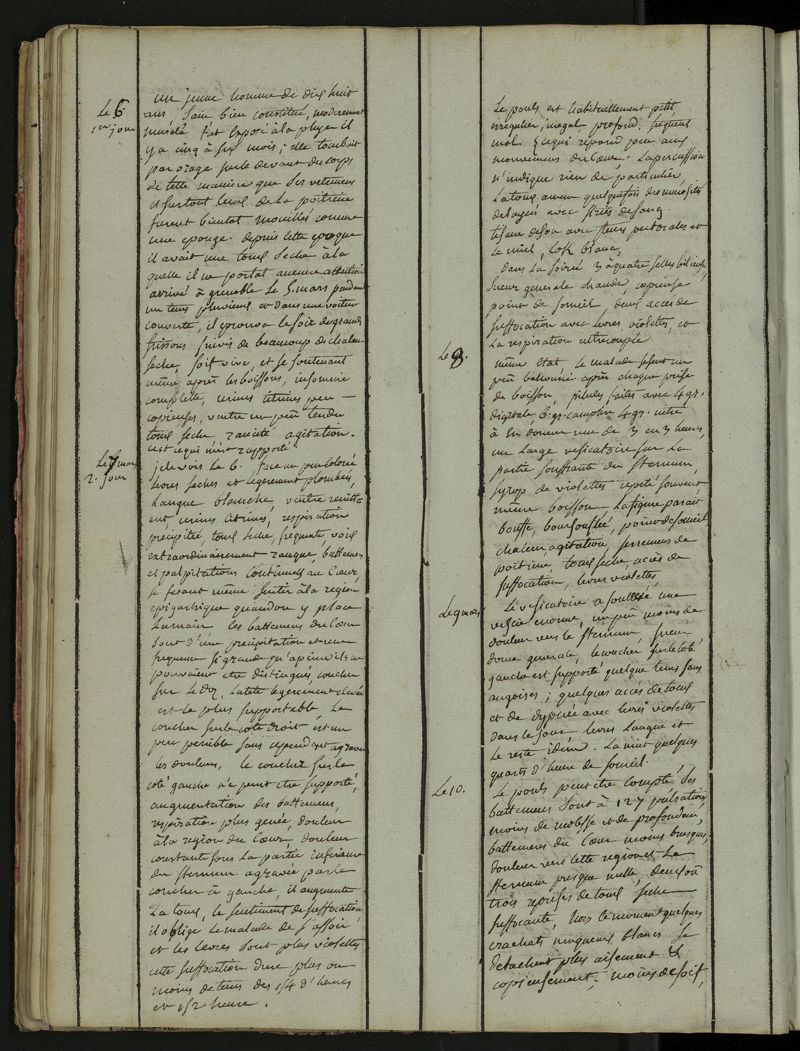 un jeune homme de dix huit
Le 6
1er jour
ans, sain bien constitué, moderement
musclé fut exposé à la pluye il
y a cinq à six mois; elle tombait
par orage sur le devant du corps
de telle maniere que ses vetemens
et surtout ceux de la poitrine
furent bientot mouillés comme
une eponge. depuis cette epoque
il avait une toux seche à la
quelle il ne portat aucune attention
arrivé à grenoble le 5. mars pendant
un tems pluvieux et dans une voiture
couverte, il eprouva le soir de grands
frissons suivis de beaucoup de chaleur
seche, soif vive, et se soutenant
même après les boissons, insomnie
complete, urines citrines peu
copieuses, ventre un peu tendu
toux seche, anxieté agitation.
c'est ce qui m'est rapporté.
Le 7 mars
2. jour
je le vois le 6. face un peu colorée
levres seches et legerement plombées,
Langue blanche, ventre
urines citrines, respiration
precipitée, toux seche, frequente, voix
extraordinairement rauque, battemens
et palpitations continuels au Coeur,
se fesant même sentir à la region
epigastrique quand on y place
La main les battemens du Coeur
sont d'une precipitation et une
frequence si grande qu'a peine ils
pouvaient etre distingués, coucher
sur le dos, la tete legerement elevée
est le plus supportable Le
coucher sur le coté droit est un
peu penible sans cependant agraver
les douleurs, le coucher sur le
coté gauche n'e peut etre supporté,
augmentation des battemens,
respiration plus genée, douleur
à la region du Coeur, douleur
constante sous la partie inferieure
du sternum agravée par le
coucher à gauche, il augmente
La toux, le sentiment de suffocation
il oblige le malade de s'assoir
et les levres sont plus violettes
cette suffocation dure plus ou
moins de tems des 1/4 d'heures
et 1/2 heure.
Le pouls est habituellement petit
irregulier, inegal profond, frequent
mol & ce qui repond peu aux
mouvemens du Coeur. La percussion
n'indique rien de particulier,
La toux amene quelquefois des mucosités
delayées avec stries de sang
tisane de son avec fleurs pectorales et
le miel, look blanc,
dans la soirée 3 à quatre selles
sueur generale chaude, copieuse
point de sommeil, deux acces de
suffocation avec levres violettes, et
La respiration entrecoupée
Le 8.
même état. Le malade se sent un
peu après chaque prise
de boisson, pilules faites avec 4 gr.
digitale 6. gr. camphre 4 gr. nitre
à En donner une de 3 en 3 heures,
un Large vesicatoire sur La
partie souffrante du sternum,
syrop de violettes repeté souvent
même boisson La figure parait
bouffie, boursouflée, point de sommeil
chaleur, agitation, serremens de
poitrine, toux seche, accès de
suffocation, levres violettes,
Le 9 mars
Le vesicatoire a soulevé une
vessie enorme, un peu moins de
douleur vers le sternum, sueur
douce generale, le coucher sur le coté
gauche est supporté quelque tems sans
angoises; quelques accès de toux
et de dypnée avec levres violettes
dans le jour levres Langue et
Le reste idem. La nuit quelques
quarts d'heure de sommeil.
Le 10.
Le pouls peut etre compté, ses
battemens sont à 127 pulsations,
moins de molesse et de profondeur,
battemens du Coeur moins brusques,
douleur vers cette region et Le
sternum presque nulle, deux ou
trois reprises de toux seche
suffocante, hors ce moment quelques
crachats muqueux blancs se
detachent plus aisement &
copieusement, moins de soif,